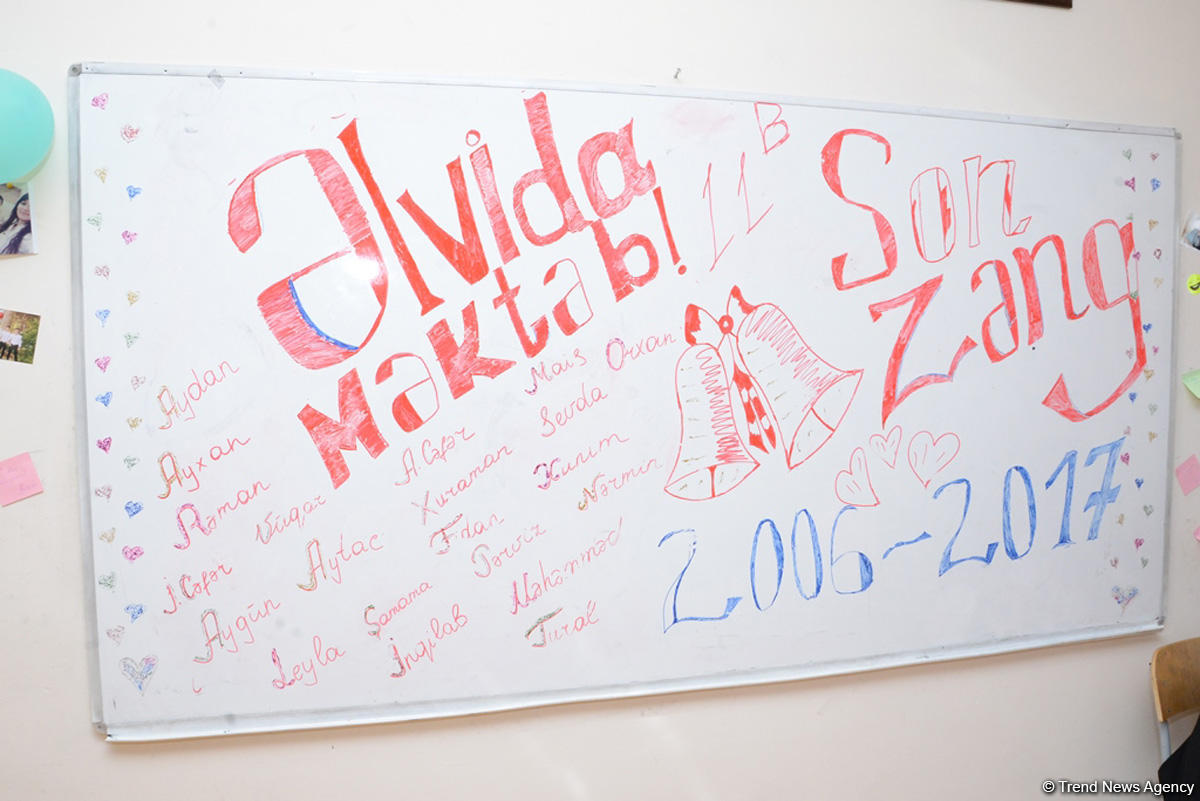 Əlvida
məktəb!
11 B
Son
Zəng
2006-2017
Aydan
Ayxan
Rəman
Vüqar
A.Cəfər
Mais
Orxan
Sevda
Xuraman
Xanım
Nərmin
Fidan
Aytac
Pərviz
İ.Cəfər
Aygün
Şamama
Məhəmməd
Leyla
İnqilab
Tural
© Trend News Agency